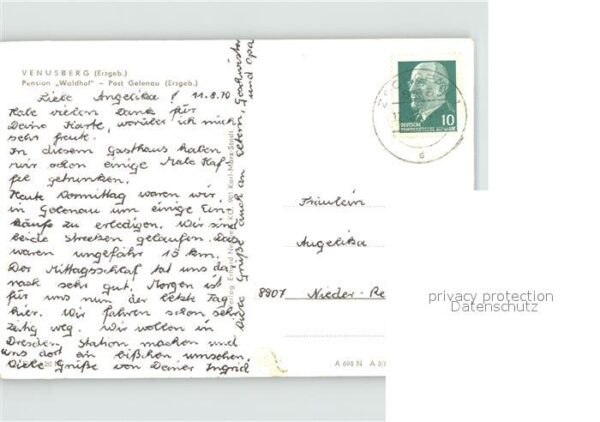 VENUSBERG (Erzgeb.)
Pension „Waldhof" – Post Gelenau (Erzgeb.)
Liebe Angelika! 11.8.70
Habe vielen Dank für
Deine Karte, worüber ich mich
sehr freute.
In diesem Gasthaus haben
wir schon einige Male Kaf-
fee getrunken.
Heute Vormittag waren wir
in Gelenau um einige Ein-
käufe zu erledigen. Wir sind
beide Strecken gelaufen. Das
waren ungefähr 15 km.
Der Mittagsschlaf tat uns da-
nach sehr gut. Morgen ist
für uns nun der letzte Tag
hier. Wir fahren schon sehr
zeitig weg. Wir wollen in
Dresden Station machen und
uns dort ein bißchen umsehen.
Viele Grüße von Deiner Ingrid
Viele Grüße auch an Eltern, Geschwister
und Opa
Karl-Marx-Stadt
DEUTSCHE
DEMOKRATISCHE REPUBLIK
10
d
Fräulein
Angelika
8907 Nieder-Re
A 698 N
privacy protection
Datenschutz